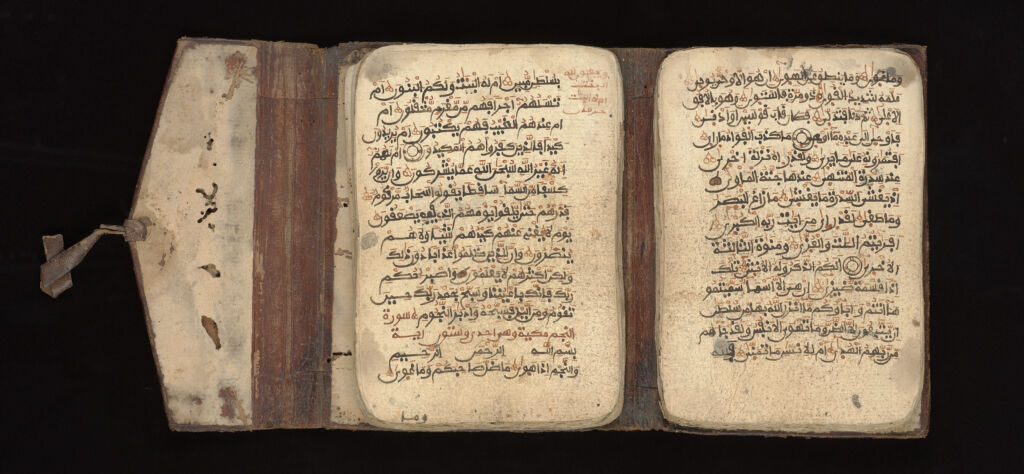 بسلطن مبين ام له البنت ولكم البنون ام
تسلهم اجرا فهم من مغرم مثقلون ام
ام عندهم الغيب فهم يكتبون ام يريدون
كيدا فالذين كفروا هم المكيدون ام لهم
اله غير الله سبحن الله عما يشركون وان يروا
كسفا من السما ساقطا يقولوا سحاب مركوم
فذرهم حتى يلقوا يومهم الذي فيه يصعقون
يوم لا يغني عنهم كيدهم شيا ولا هم
ينصرون وان للذين ظلموا عذابا دون ذلك
ولكن اكثرهم لا يعلمون واصبر لحكم
ربك فانك باعيننا وسبح بحمد ربك حين
تقوم ومن اليل فسبحه وادبر النجوم سورة
النجم مكية وهي احدى وستون اية
بسم الله الرحمن الرحيم
والنجم اذا هوى ما ضل صاحبكم وما غوى
وما
وما غوى وما ينطق عن الهوى ان هو الا وحي يوحى
علمه شديد القوى ذو مرة فاستوى وهو بالافق
الاعلى ثم دنا فتدلى فكان قاب قوسين او ادنى
فاوحى الى عبده ما اوحى ما كذب الفواد ما راى
افتمرونه على ما يرى ولقد راه نزلة اخرى
عند سدرة المنتهى عندها جنة الماوى
اذ يغشى السدرة ما يغشى ما زاغ البصر
وما طغى لقد راى من ايت ربه الكبرى
افريتم اللت والعزى ومنوة الثالثة
الاخرى الكم الذكر وله الانثى تلك
اذا قسمة ضيزى ان هي الا اسما سميتمو
ها انتم واباوكم ما انزل الله بها من سلطن
ان يتبعون الا الظن وما تهوى الانفس ولقد جاهم
من ربهم الهدى ام للانسن ما تمنى فلله